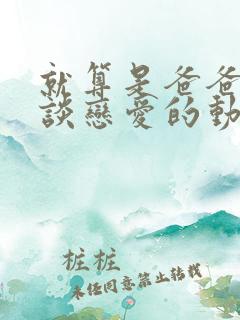 就算是爸爸
談戀愛的動
桩桩
未经同意禁止转载